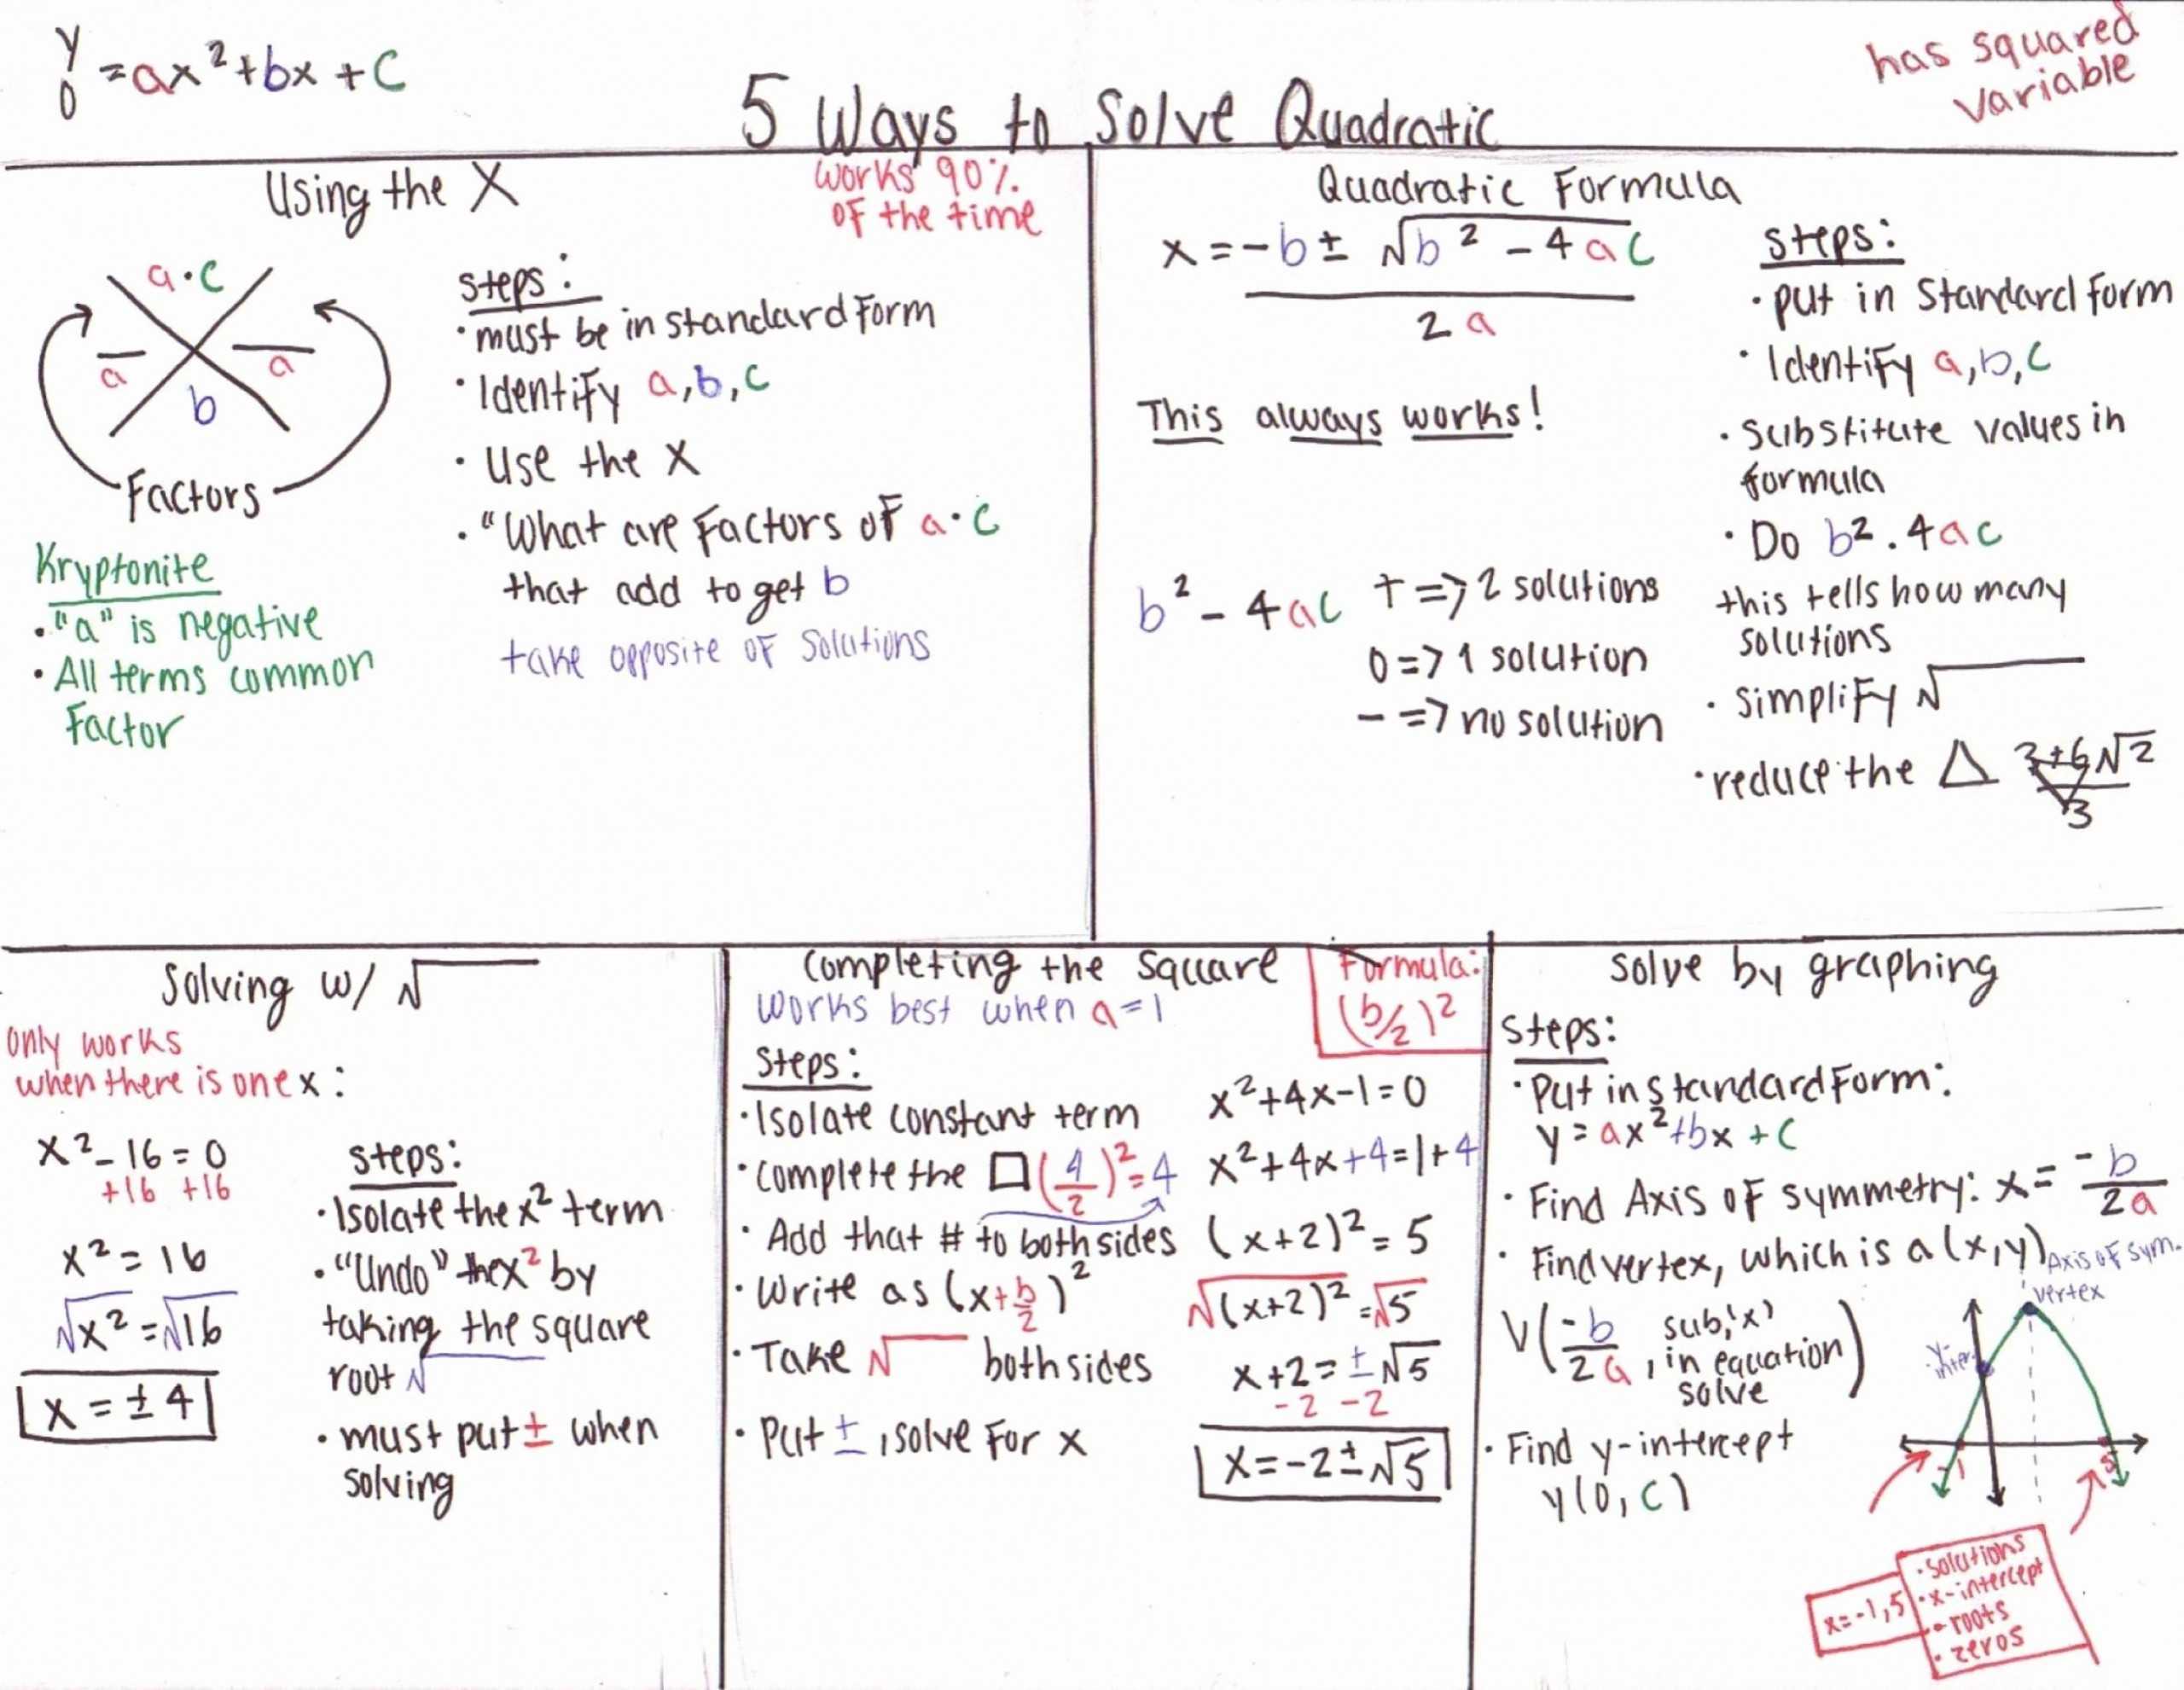 y
0 = ax² + bx + c
has squared
variable
5 Ways to Solve Quadratic
Using the X
works 90%
of the time
a·c
a
a
b
Factors
Kryptonite
• "a" is negative
• All terms common
Factor
steps:
• must be in standard Form
• Identify a, b, c
• Use the X
• "What are Factors of a·c
that add to get b
take opposite of Solutions
Quadratic Formula
x = -b ± √b² - 4ac
2a
This always works!
b² - 4ac + => 2 solutions
0 => 1 solution
- => no solution
steps:
• put in Standard form
• Identify a, b, c
• Substitute values in
formula
• Do b² . 4ac
this tells how many
solutions
• simplify √
• reduce the △ 3+6√2
3
Solving w/ √
only works
when there is one x:
x² - 16 = 0
+16 +16
x² = 16
√x² = √16
x = ± 4
steps:
• Isolate the x² term
• "Undo" the x² by
taking the square
root √
• must put ± when
solving
Completing the Square
Formula:
(b/2)²
Works best when a=1
Steps:
• Isolate constant term
• complete the □ (4/2)² = 4
• Add that # to both sides
• Write as (x+b/2)²
• Take √ both sides
• Put ±, solve For x
x²+4x-1=0
x²+4x+4=1+4
(x+2)² = 5
√(x+2)² = √5
x+2 = ±√5
-2 -2
x = -2 ± √5
Solve by graphing
Steps:
• Put in Standard Form:
y = ax² + bx + c
• Find Axis of symmetry: x = -b/2a
• Find vertex, which is a (x,y)
V(-b/2a, sub, 'x'
in equation
solve)
• Find y-intercept
y(0, c)
Axis of sym.
vertex
y-
inter.
-1
5
x=-1,5
• solutions
• x-intercept
• roots
• zeros